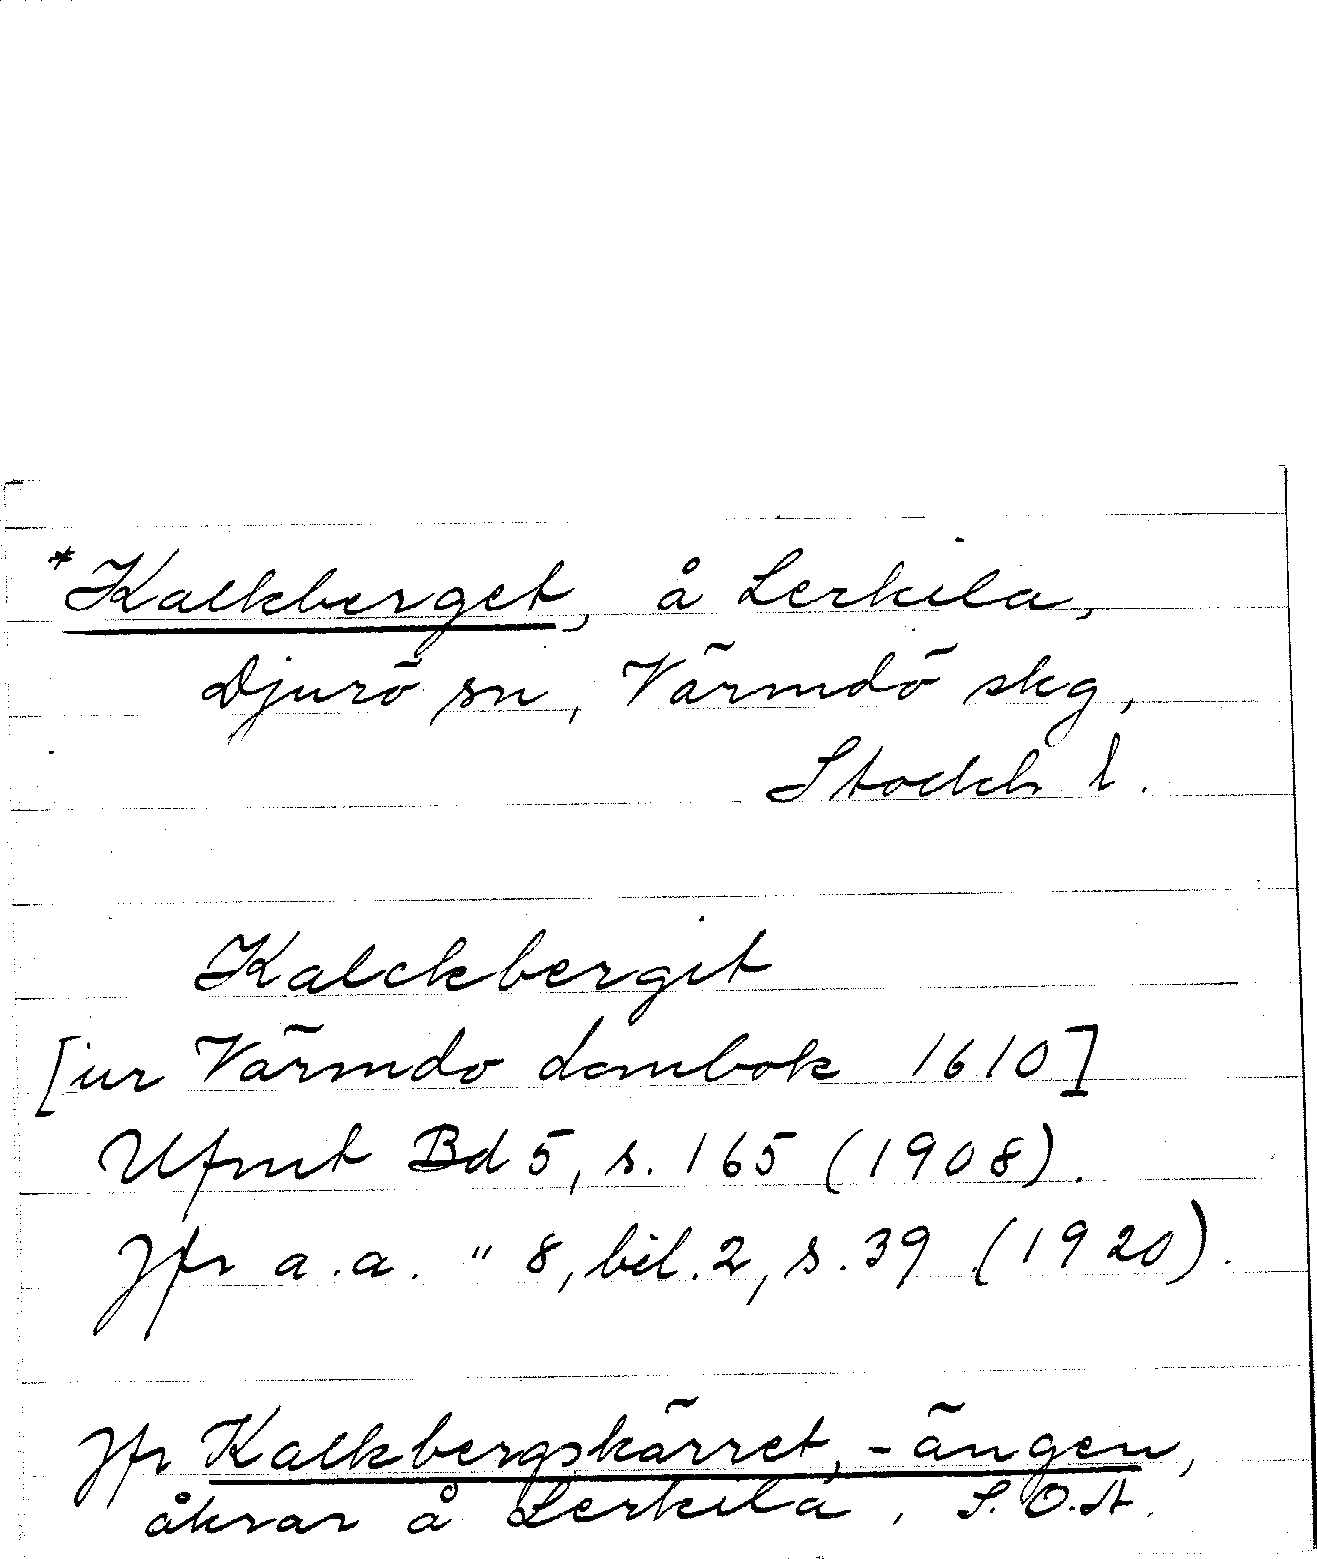 *Kalkberget, å Lerkila,
Djurö sn, Värmdö skg,
Stockh l.
Kalckbergit
[ur Värmdö dombok 1610]
Ufmt Bd 5, s. 165 (1908).
Jfr a.a. " 8, bil. 2, s. 39 (1920).
Jfr Kalkbergskärret, -ängen,
åkrar å Lerkila, S.O.A.